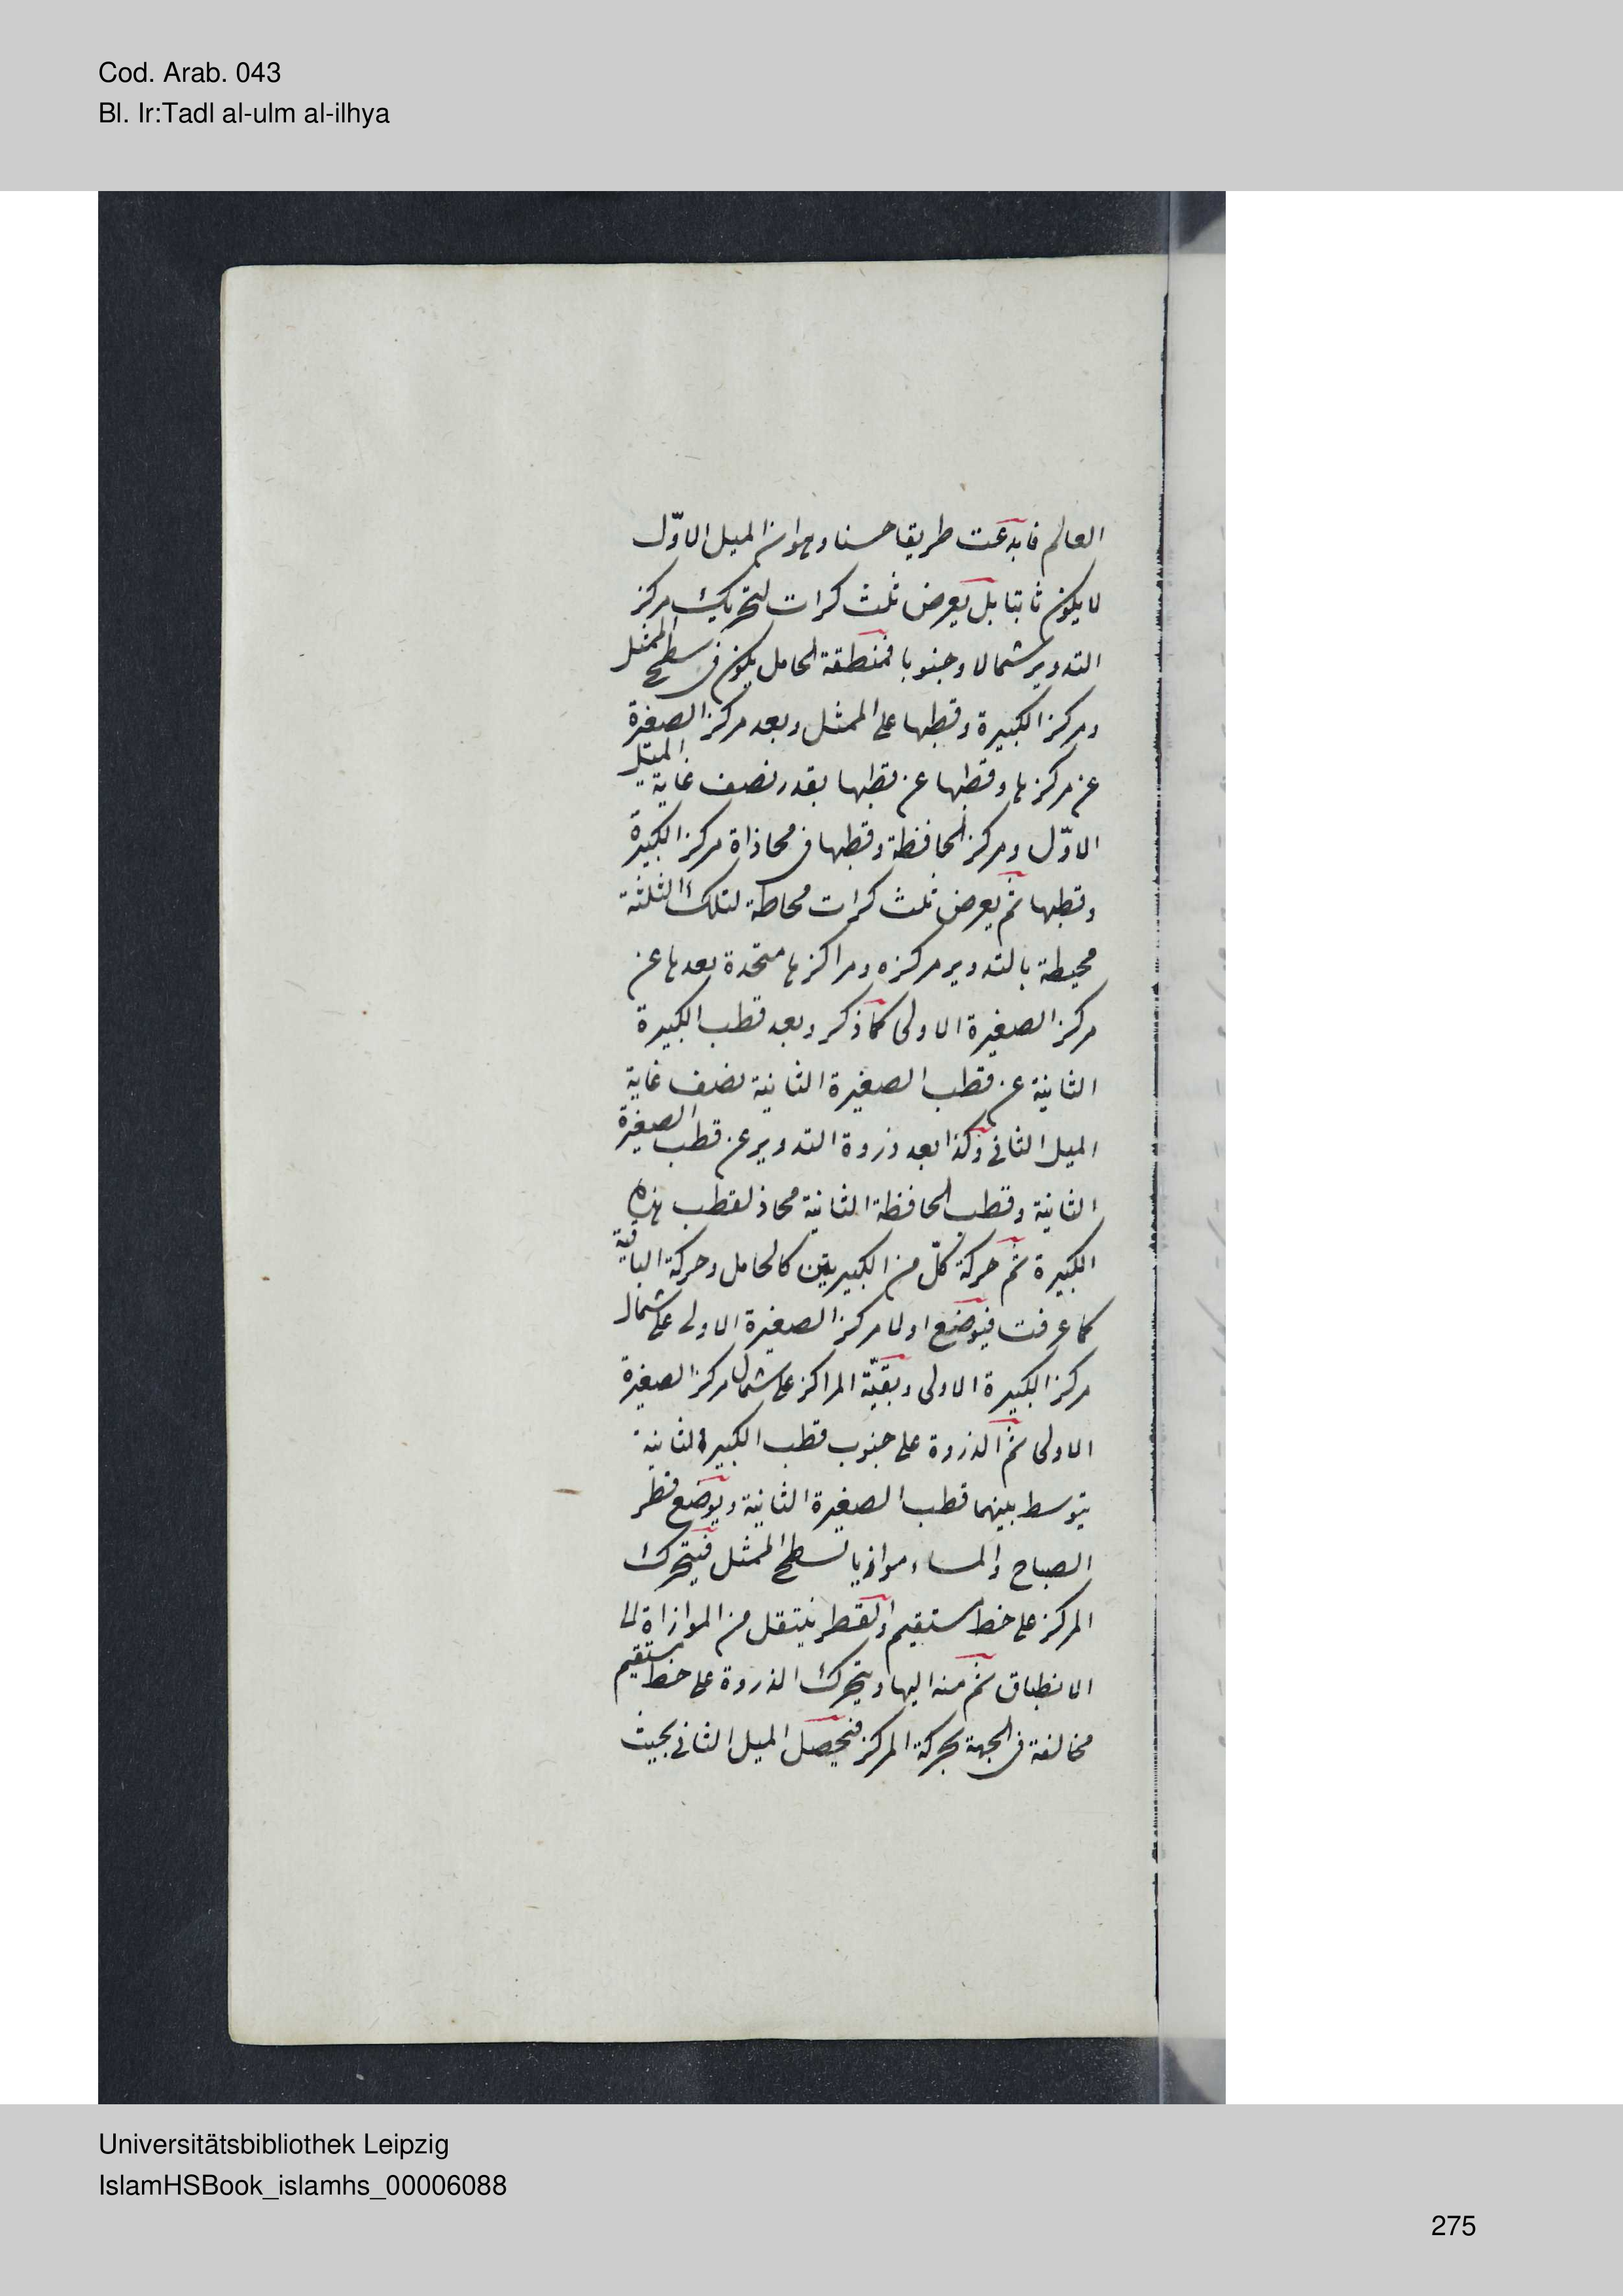 Cod. Arab. 043
Bl. Ir:Tadl al-ulm al-ilhya
العالم فابدعت طريقا حسنا وهو ان الميل الاوّل
لا يكون ثابتا بل يعرض ثلث كرات لتحريك مركز
التدوير شمالا وجنوبا فمنطقة الحامل يكون فى سطح الممثل
ومركز الكبيرة وقطبها على الممثل وبعد مركز الصغيرة
عن مركزها وقطبها عن قطبها بقدر نصف غاية الميل
الاوّل ومركز الحافظة وقطبها فى محاذاة مركز الكبيرة
وقطبها ثم يعرض ثلث كرات محاطة لتلك الثلثة
محيطة بالتدوير مركزه ومراكزها متحدة بعدها عن
مركز الصغيرة الاولى كما ذكر وبعد قطب الكبيرة
الثانية عن قطب الصغيرة الثانية نصف غاية
الميل الثانى وكذا بعد ذروة التدوير عن قطب الصغيرة
الثانية وقطب الحافظة الثانية محاذ لقطب هذه
الكبيرة ثم حركة كلّ من الكبيرتين كالحامل وحركة الباقية
كما عرفت فيوضع اولا مركز الصغيرة الاولى على شمال
مركز الكبيرة الاولى وبقيّة المراكز على شمال مركز الصغيرة
الاولى ثم الذروة على جنوب قطب الكبيرة الثانية
يتوسط بينهما قطب الصغيرة الثانية ويوضع قطر
الصباح والمساء موازيا لسطح الممثل فيتحرك
المركز على خط مستقيم والقطر ينتقل من الموازاة الى
الانطباق ثم منه اليها ويتحرك الذروة على خط مستقيم
مخالفة فى الجهة بحركة المركز فيحصل الميل الثانى بحيث
Universitätsbibliothek Leipzig
IslamHSBook_islamhs_00006088
275